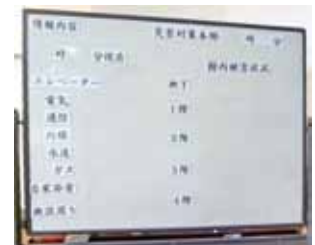 情報内容
災害対策本部 時 分
時 分現在
館内被害状況
エレベーター
地下
電気
1階
通信
内線
2階
水道
3階
ガス
4階